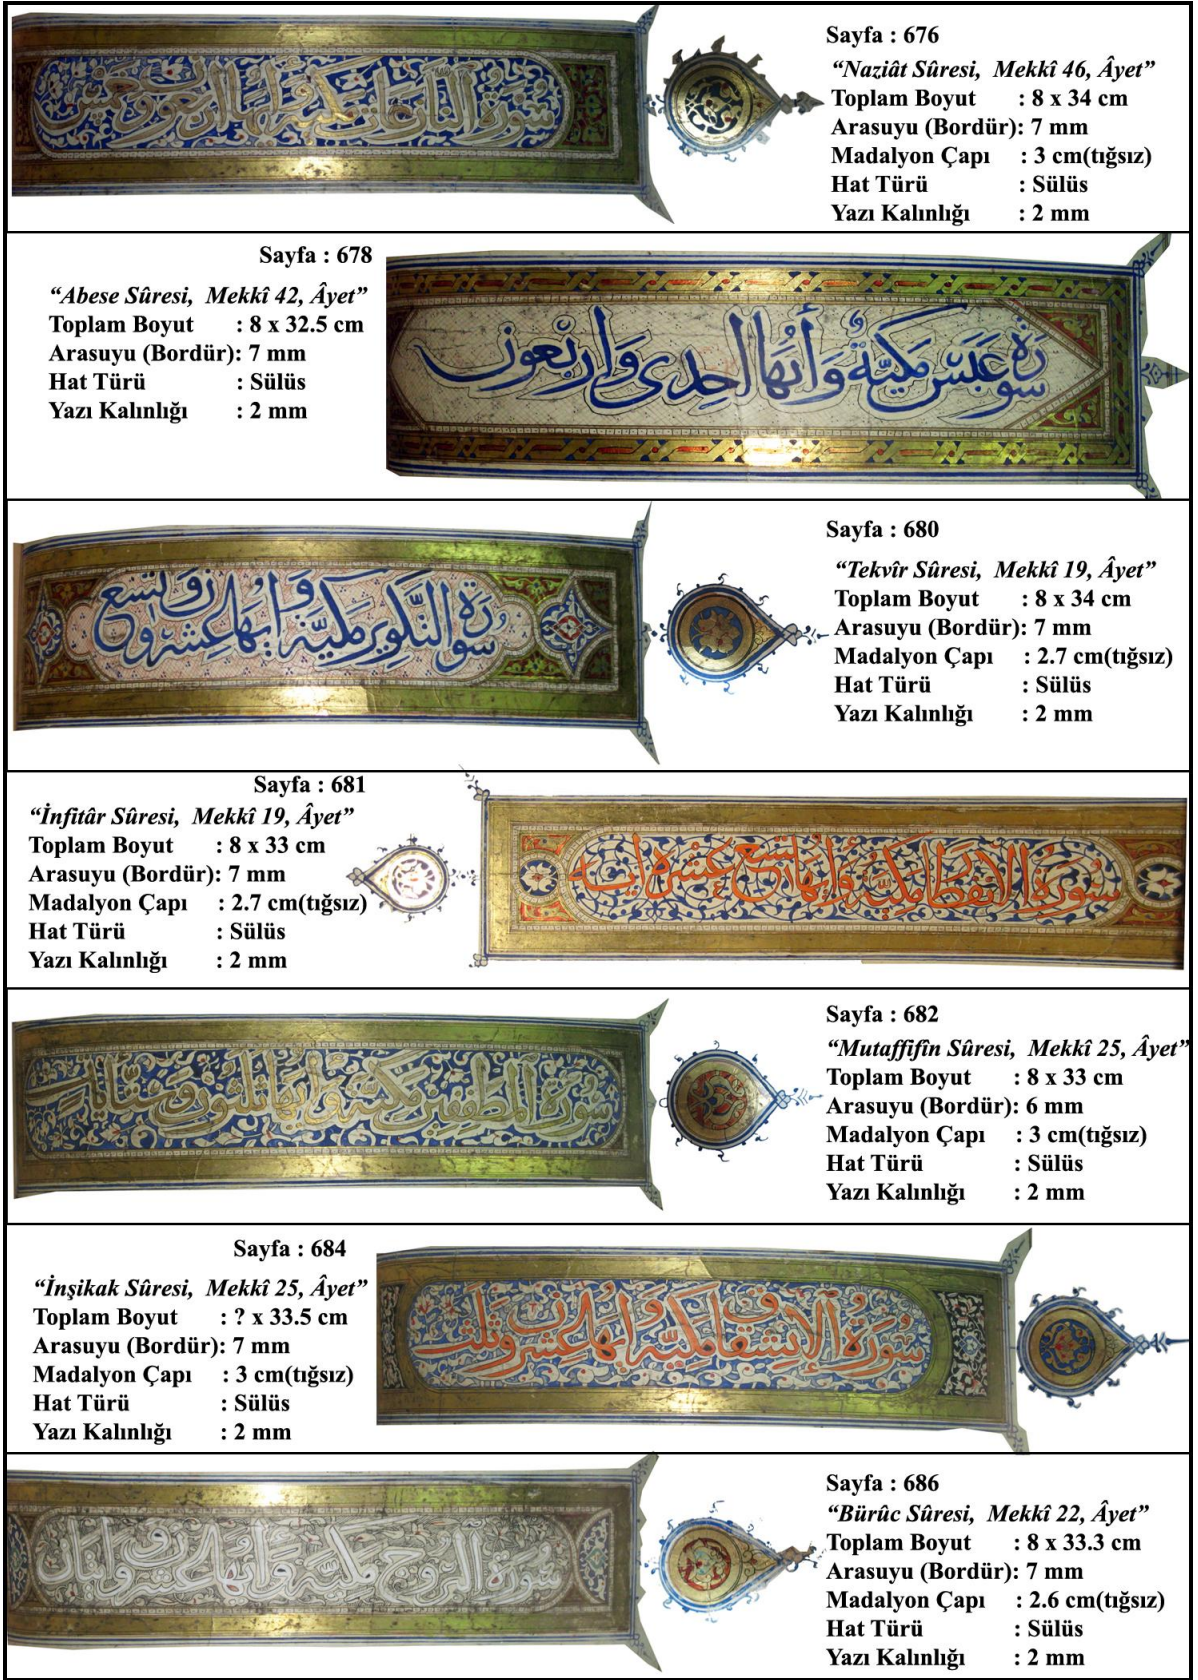 سورة النازعات مكية وايها اربعون وخمس
Sayfa : 676
“Naziât Sûresi, Mekkî 46, Âyet”
Toplam Boyut : 8 x 34 cm
Arasuyu (Bordür): 7 mm
Madalyon Çapı : 3 cm(tığsız)
Hat Türü : Sülüs
Yazı Kalınlığı : 2 mm
Sayfa : 678
“Abese Sûresi, Mekkî 42, Âyet”
Toplam Boyut : 8 x 32.5 cm
Arasuyu (Bordür): 7 mm
Hat Türü : Sülüs
Yazı Kalınlığı : 2 mm
سورة عبس مكية وأيها احدى واربعون
سورة التكوير مكية وايها عشرون وتسع
Sayfa : 680
“Tekvîr Sûresi, Mekkî 19, Âyet”
Toplam Boyut : 8 x 34 cm
Arasuyu (Bordür): 7 mm
Madalyon Çapı : 2.7 cm(tığsız)
Hat Türü : Sülüs
Yazı Kalınlığı : 2 mm
Sayfa : 681
“İnfitâr Sûresi, Mekkî 19, Âyet”
Toplam Boyut : 8 x 33 cm
Arasuyu (Bordür): 7 mm
Madalyon Çapı : 2.7 cm(tığsız)
Hat Türü : Sülüs
Yazı Kalınlığı : 2 mm
سورة الانفطار مكية وأيها تسع عشرة اية
سورة المطففين مكية وايها ثلثون وست ايات
Sayfa : 682
“Mutaffifîn Sûresi, Mekkî 25, Âyet”
Toplam Boyut : 8 x 33 cm
Arasuyu (Bordür): 6 mm
Madalyon Çapı : 3 cm(tığsız)
Hat Türü : Sülüs
Yazı Kalınlığı : 2 mm
Sayfa : 684
“İnşikak Sûresi, Mekkî 25, Âyet”
Toplam Boyut : ? x 33.5 cm
Arasuyu (Bordür): 7 mm
Madalyon Çapı : 3 cm(tığsız)
Hat Türü : Sülüs
Yazı Kalınlığı : 2 mm
سورة الانشقاق مكية وايها عشرون وثلث
سورة البروج مكية وايها عشرون
Sayfa : 686
“Bürûc Sûresi, Mekkî 22, Âyet”
Toplam Boyut : 8 x 33.3 cm
Arasuyu (Bordür): 7 mm
Madalyon Çapı : 2.6 cm(tığsız)
Hat Türü : Sülüs
Yazı Kalınlığı : 2 mm